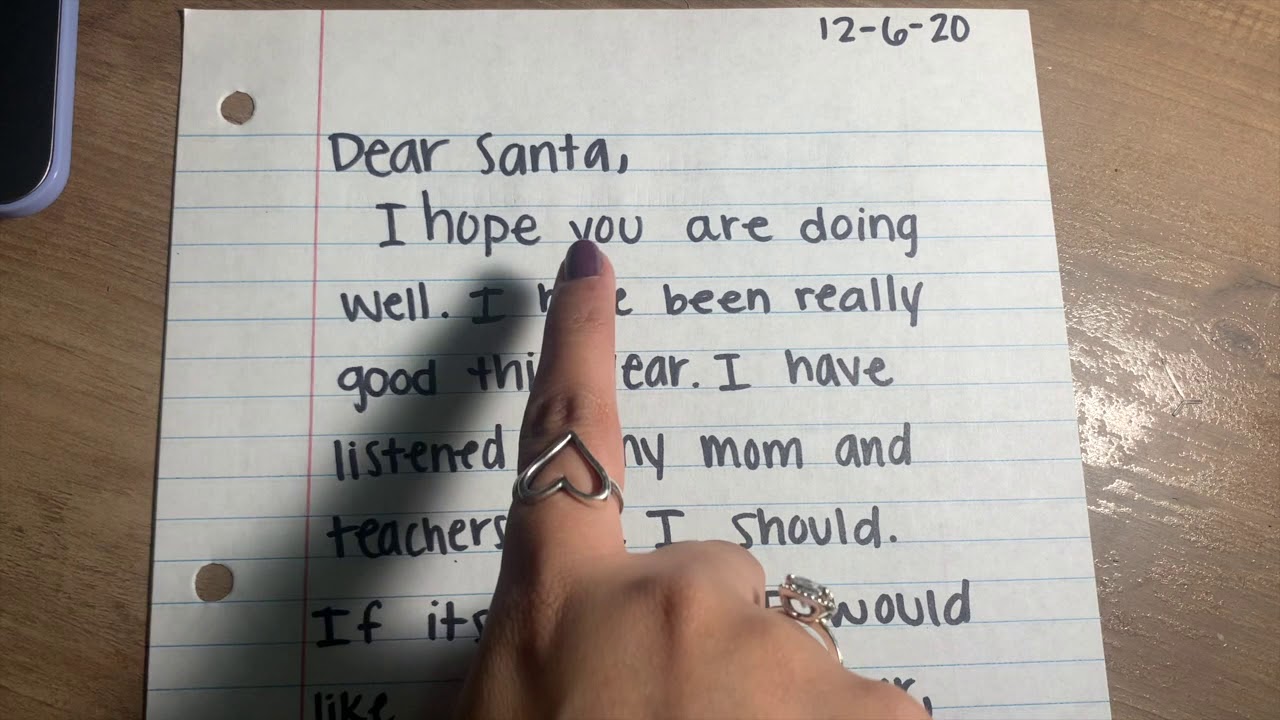 12-6-20
Dear Santa,
I hope you are doing
well. I have been really
good this year. I have
listened my mom and
teachers I should.
If its would
like